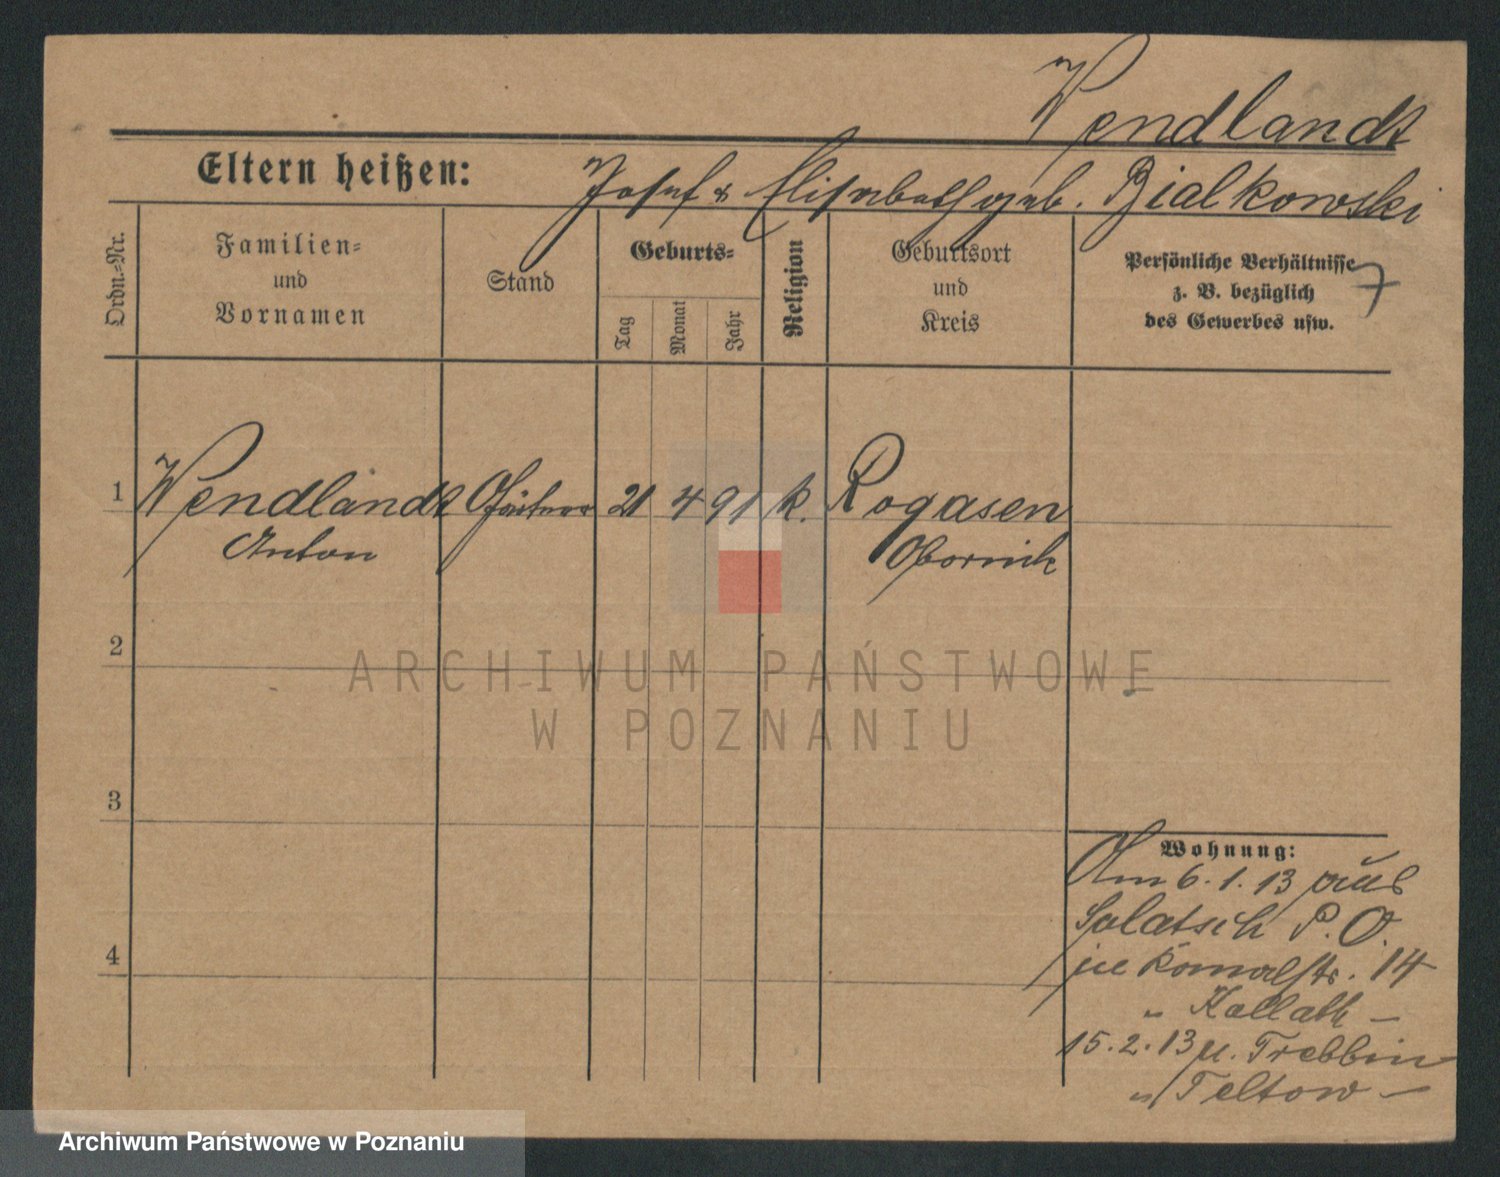 Wendlandt
Eltern heißen: Josef & Elisabeth geb. Bialkowski
Ordn.-Nr.
Familien-
und
Vornamen
Stand
Geburts-
Tag
Monat
Jahr
Religion
Geburtsort
und
Kreis
Persönliche Verhältnisse
z. B. bezüglich
des Gewerbes usw.
7
1 Wendlandt Gärtner 21 4 91 k. Rogasen
Anton Obornik
2
3
4
Wohnung:
Am 6.1.13 aus
Solatsch P. O.
14
" Kollath –
15.2.13 n. Trebbin
" Teltow –
ARCHIWUM PAŃSTWOWE
W POZNANIU
Archiwum Państwowe w Poznaniu